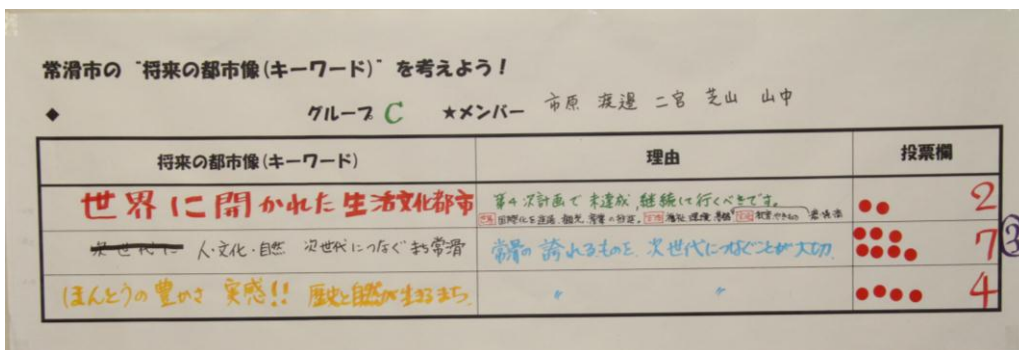 常滑市の“将来の都市像(キーワード)”を考えよう！
◆ グループ C ★メンバー 市原 渡邉 二宮 芝山 山中
将来の都市像(キーワード) 理由 投票欄
世界に開かれた生活文化都市 第4次計画で未達成、継続して行くべきです。 2
国際化を 観光 福祉 環境
次世代に 人・文化・自然 次世代につなぐまち常滑 常滑の誇れるものを、次世代につなぐことが大切。 7 ③
ほんとうの豊かさ 実感!! 歴史と自然が生きるまち 〃 〃 4